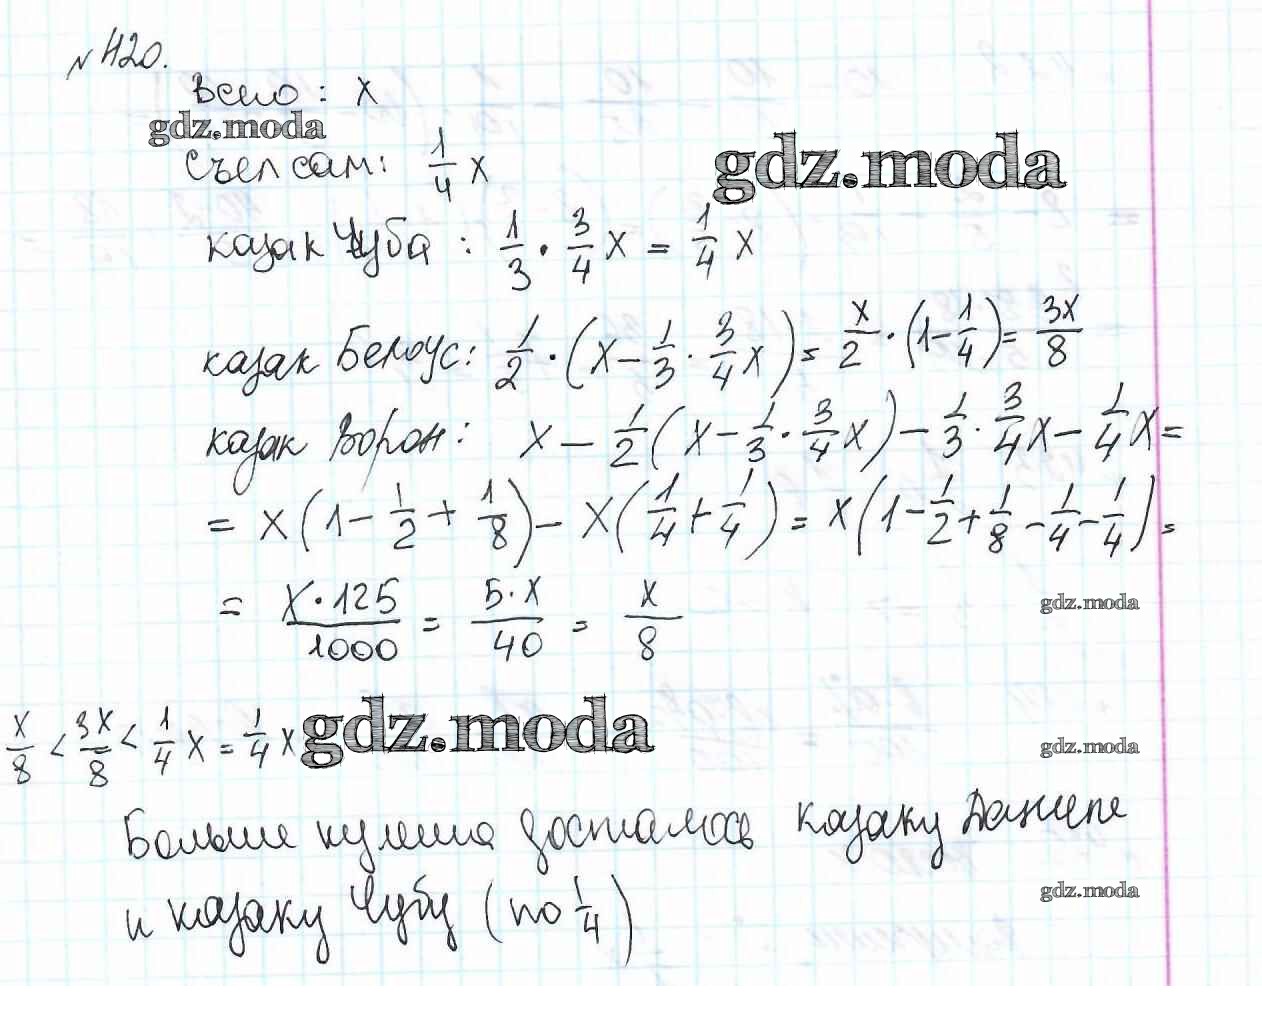 № 420.
Всего : x
gdz.moda
Съел сам: 1/4 x
gdz.moda
казак Чуба : 1/3 · 3/4 x = 1/4 x
казак Белоус: 1/2 · (x - 1/3 · 3/4 x) = x/2 · (1 - 1/4) = 3x/8
казак Ворон: x - 1/2 (x - 1/3 · 3/4 x) - 1/3 · 3/4 x - 1/4 x =
= x (1 - 1/2 + 1/8) - x (1/4 + 1/4) = x (1 - 1/2 + 1/8 - 1/4 - 1/4) =
= x · 125/1000 = 5 · x/40 = x/8
gdz.moda
x/8 < 3x/8 < 1/4 x = 1/4 x
gdz.moda
gdz.moda
Больше кулеша досталось казаку Даниле
gdz.moda
и казаку Чубу (по 1/4)